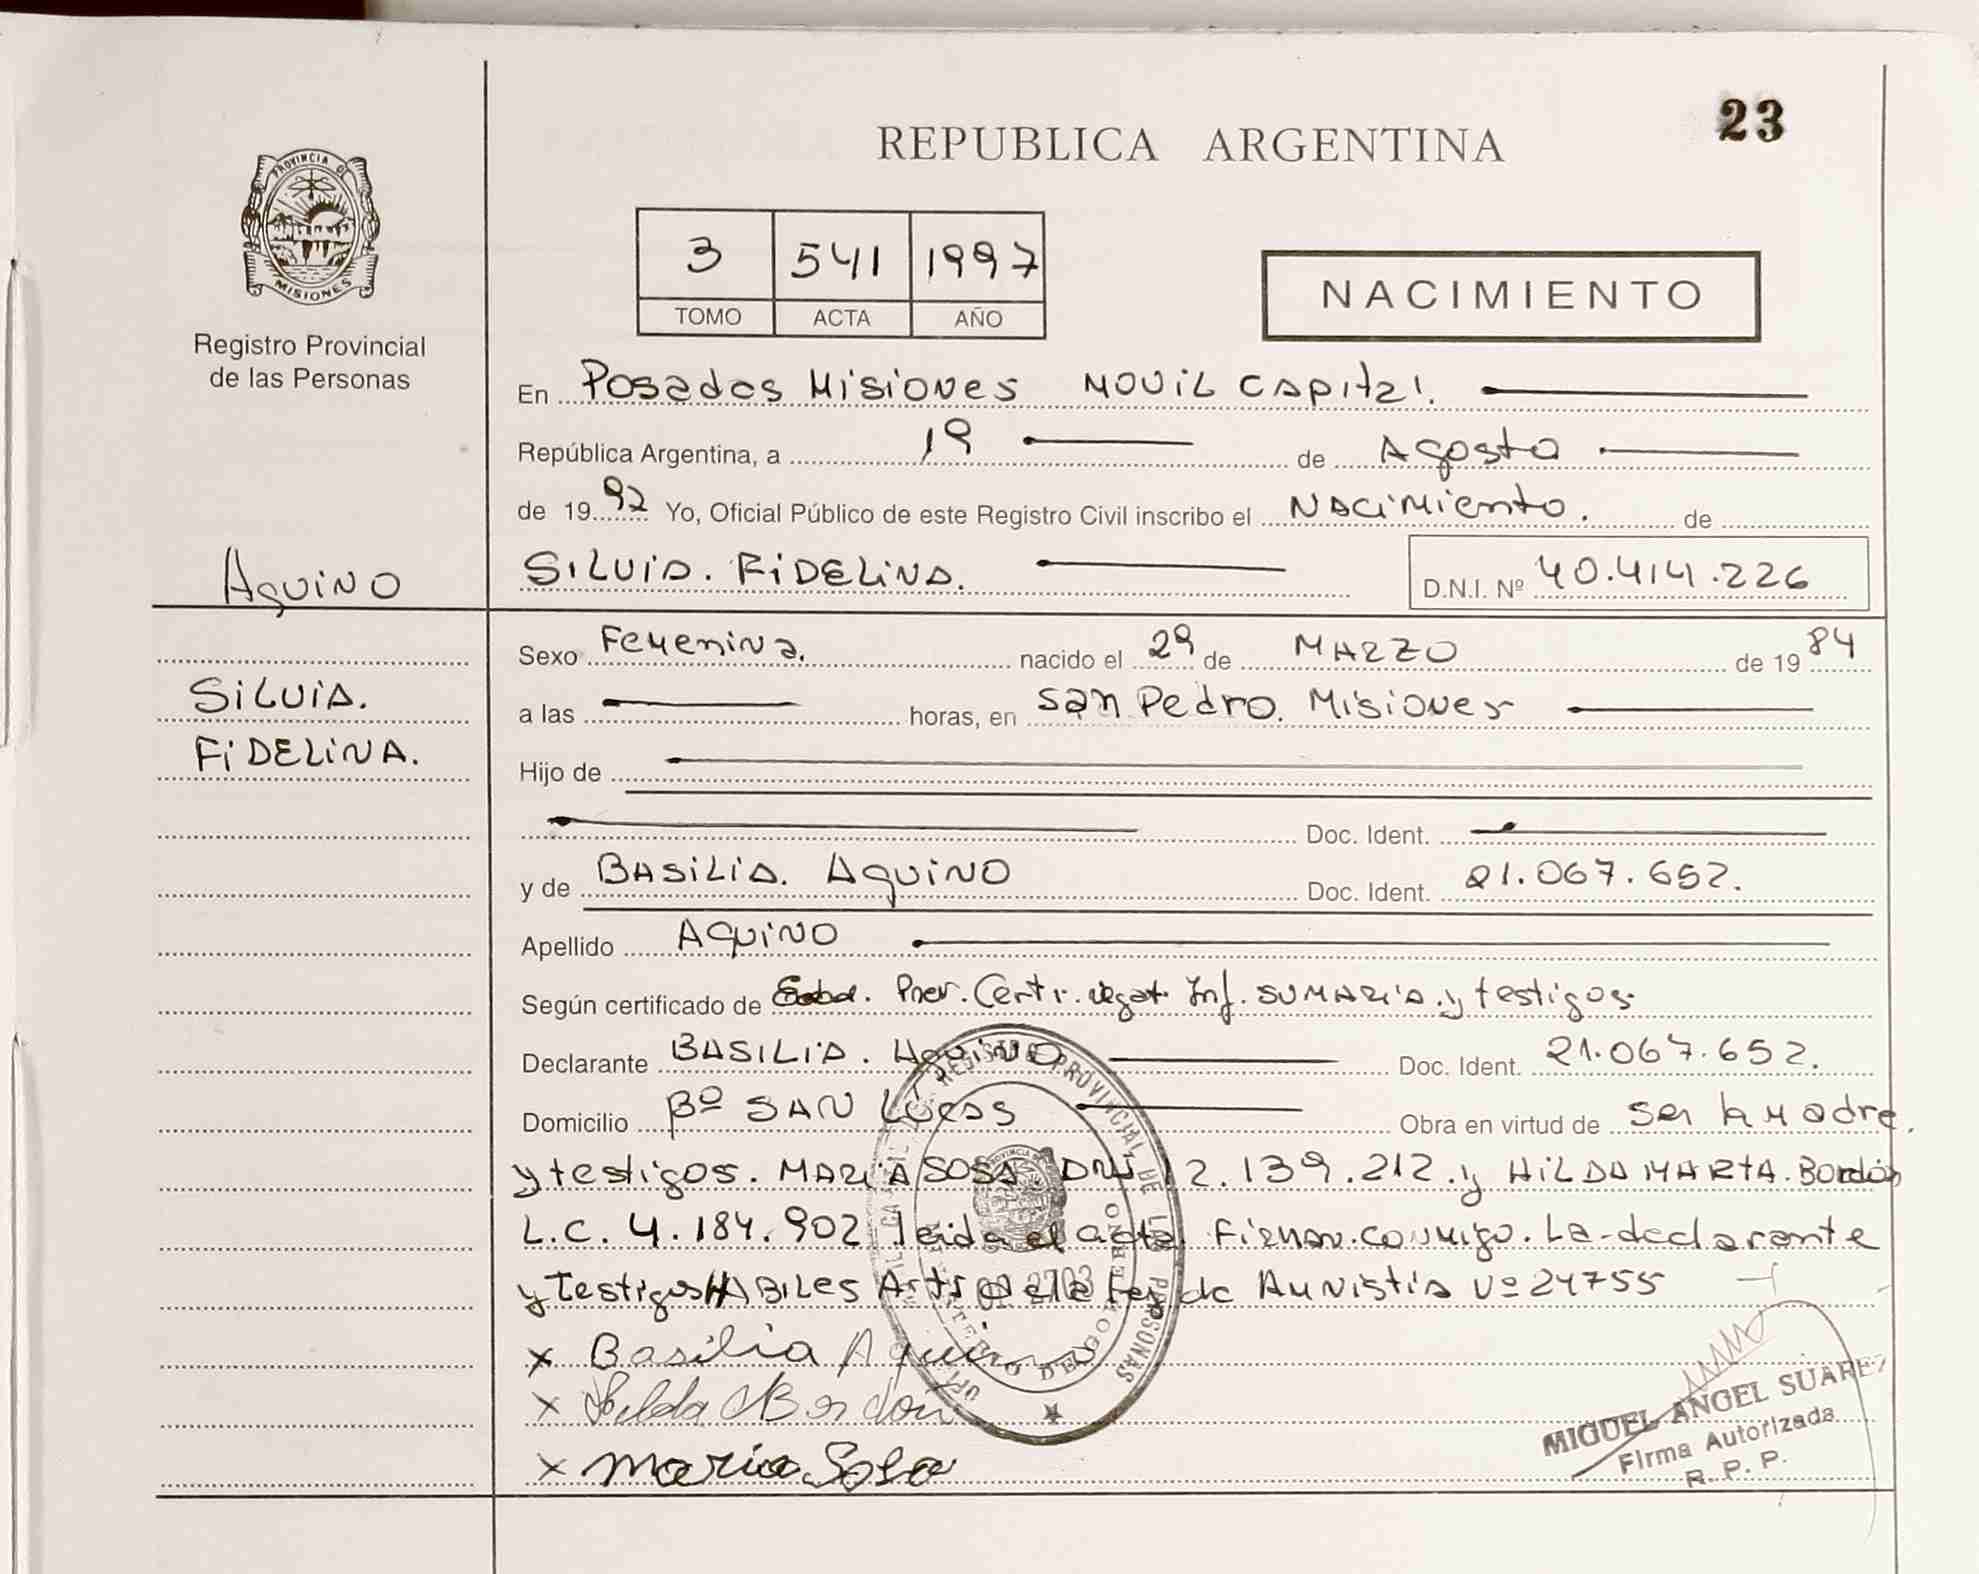 23
REPUBLICA ARGENTINA
PROVINCIA DE
MISIONES
Registro Provincial
de las Personas
3 541 1997
TOMO ACTA AÑO
NACIMIENTO
En Posadas Misiones MOVIL CAPital.
República Argentina, a 19 de Agosto
de 1992 Yo, Oficial Público de este Registro Civil inscribo el NACiMiento. de
Aquino
SILVIA. FiDELiNA.
D.N.I. Nº 40.414.226
Sexo Femenina. nacido el 29 de MARZO de 1984
SiLViA.
a las horas, en San Pedro. Misiones
FiDELiNA.
Hijo de
Doc. Ident.
y de BASiLiA. AQUiNO Doc. Ident. 21.067.652.
Apellido AQUiNO
Según certificado de Prev. Certi. Inf. SUMARiA. y testigos
Declarante BASILIA. AquiNO Doc. Ident. 21.067.652.
Domicilio Bº SAN LUCAS Obra en virtud de ser la Madre.
y testigos. MARiA SOSA DNI 12.139.212. y HiLDA MARTA. Bordón
L.C. 4.184.902 leida el acta. Firman. conmigo. La declarante
y Testigos HABiLES de la Ley de Amnistia Nº 24755
x Basilia Aquino
x Hilda Bordón
x Maria Sosa
REGISTRO PROVINCIAL DE LAS PERSONAS
MINISTERIO DE GOBIERNO
MIGUEL ANGEL SUAREZ
Firma Autorizada
R. P. P.